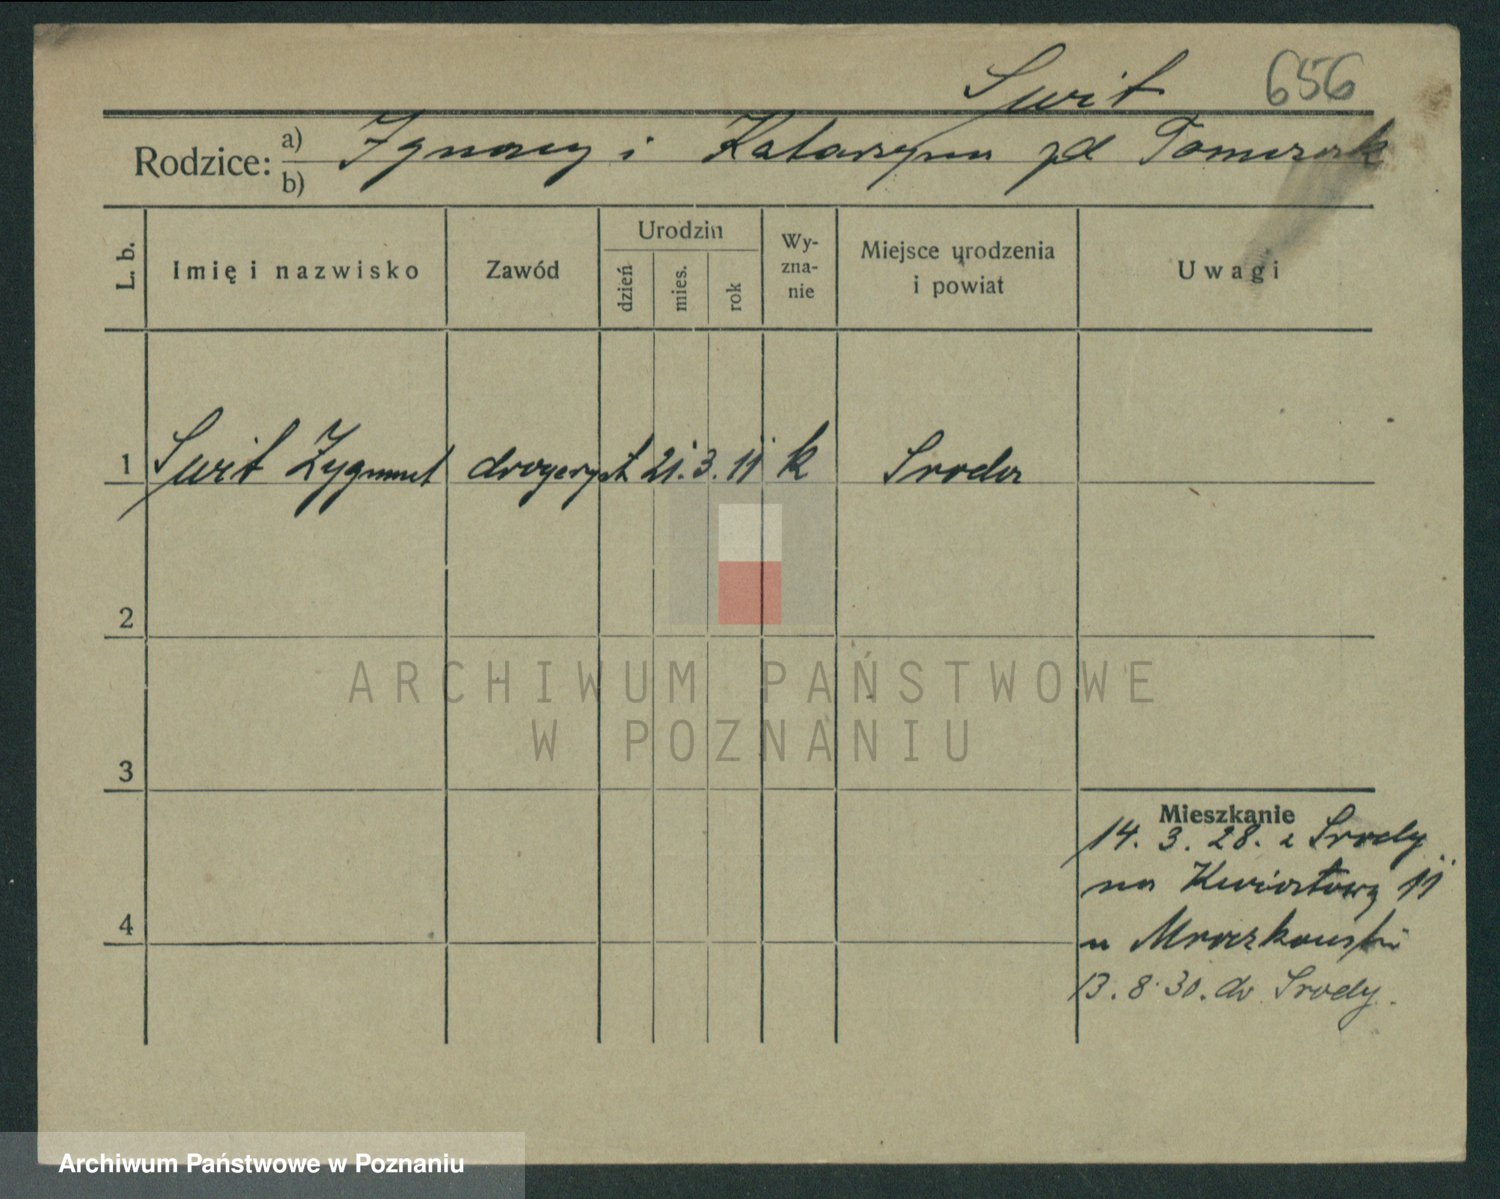 Swit 656
Rodzice: a) b) Ignacy i Katarzyna zd Tomczak
L. b. Imię i nazwisko Zawód Urodzin dzień mies. rok Wy-zna-nie Miejsce urodzenia i powiat Uwagi
1 Swit Zygmunt drogeryst 21. 3. 11 k Sroda
2
3
4
Mieszkanie
14. 3. 28. z Srody
na Kwiatową 11
u Mroczkowski
13. 8. 30. do Srody.
ARCHIWUM PAŃSTWOWE
W POZNANIU
Archiwum Państwowe w Poznaniu